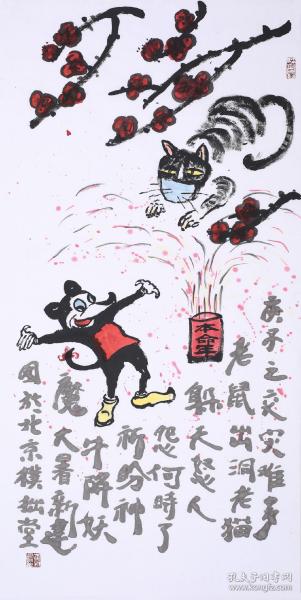 本命年
庚子之交灾难多
老鼠出洞老猫
躲天怒人
怨何时了
祈盼神
牛降妖
魔大暑新建
图於北京樸拙堂
孔夫子旧书网